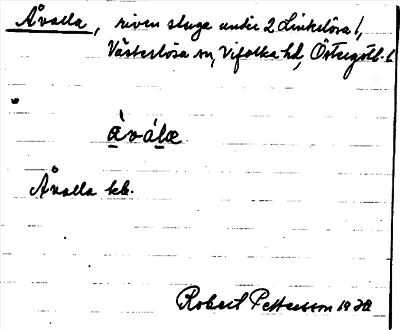 Åvalla, riven stuga under 2 Linkelösa l,
Västerlösa sn, Vifolka hd, Östergötl. l
åvála
Åvalla kk.
Robert Pettersson 1930